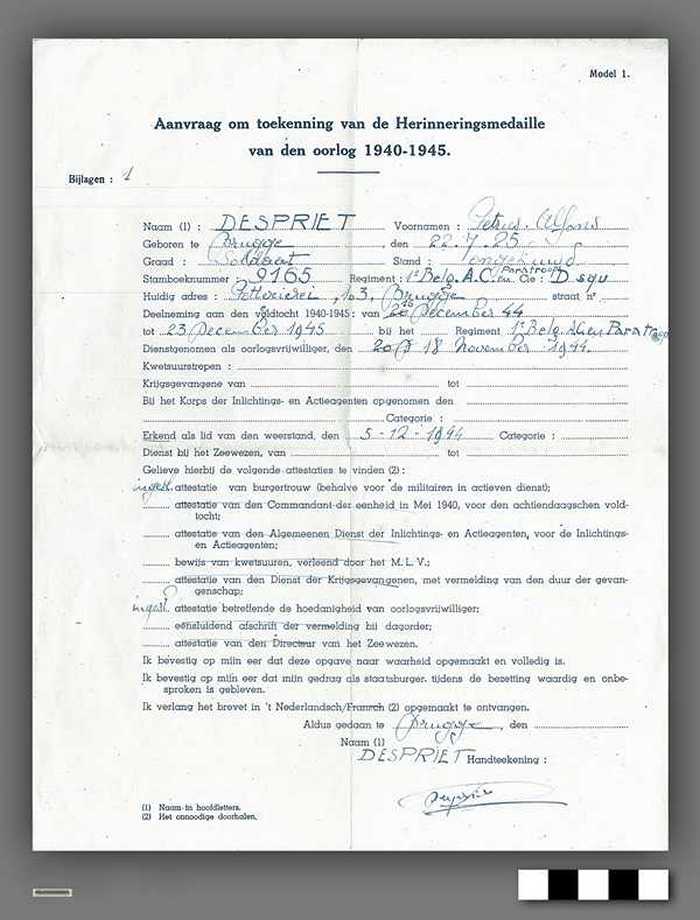 Model 1.
Aanvraag om toekenning van de Herinneringsmedaille
van den oorlog 1940-1945.
Bijlagen : 1
Naam (1) : DESPRIET Voornamen : Petrus. Alfons
Geboren te Brugge , den 22.7.25
Graad : Soldaat Stand : ongehuwd
Stamboeknummer : 9165 Regiment : 1e Belg. A.C. en Paratroop Cie : D squ
Huldig adres : Potterierei , 103, Brugge straat nr
Deelneming aan den veldtocht 1940-1945 : van December 44
tot 23 December 1945 bij het Regiment 1e Belg.
Dienstgenomen als oorlogsvrijwilliger, den 18 November 1944.
Kwetsuurstrepen :
Krijgsgevangene van tot
Bij het Korps der Inlichtings- en Actieagenten opgenomen den
Categorie :
Erkend als lid van den weerstand, den 5-12-1944 Categorie :
Dienst bij het Zeewezen, van tot
Gelieve hierbij de volgende attestaties te vinden (2) :
ingesl. attestatie van burgertrouw (behalve voor de militairen in actieven dienst);
attestatie van den Commandant der eenheid in Mei 1940, voor den achtiendaagschen veld-
tocht;
attestatie van den Algemeenen Dienst der Inlichtings- en Actieagenten, voor de Inlichtings-
en Actieagenten;
bewijs van kwetsuren, verleend door het M. L. V.;
attestatie van den Dienst der Krijgsgevangenen, met vermelding van den duur der gevan-
genschap;
ingesl. attestatie betreffende de hoedanigheid van oorlogsvrijwilliger;
eensluidend afschrift der vermelding bij dagorder;
attestatie van den Directeur van het Zeewezen.
Ik bevestig op mijn eer dat deze opgave naar waarheid opgemaakt en volledig is.
Ik bevestig op mijn eer dat mijn gedrag als staatsburger tijdens de bezetting waardig en onbe-
sproken is gebleven.
Ik verlang het brevet in 't Nederlandsch/Fransch (2) opgemaakt te ontvangen.
Aldus gedaan te Brugge , den
Naam (1)
DESPRIET Handteekening :
(1) Naam in hoofdletters.
(2) Het onnoodige doorhalen.